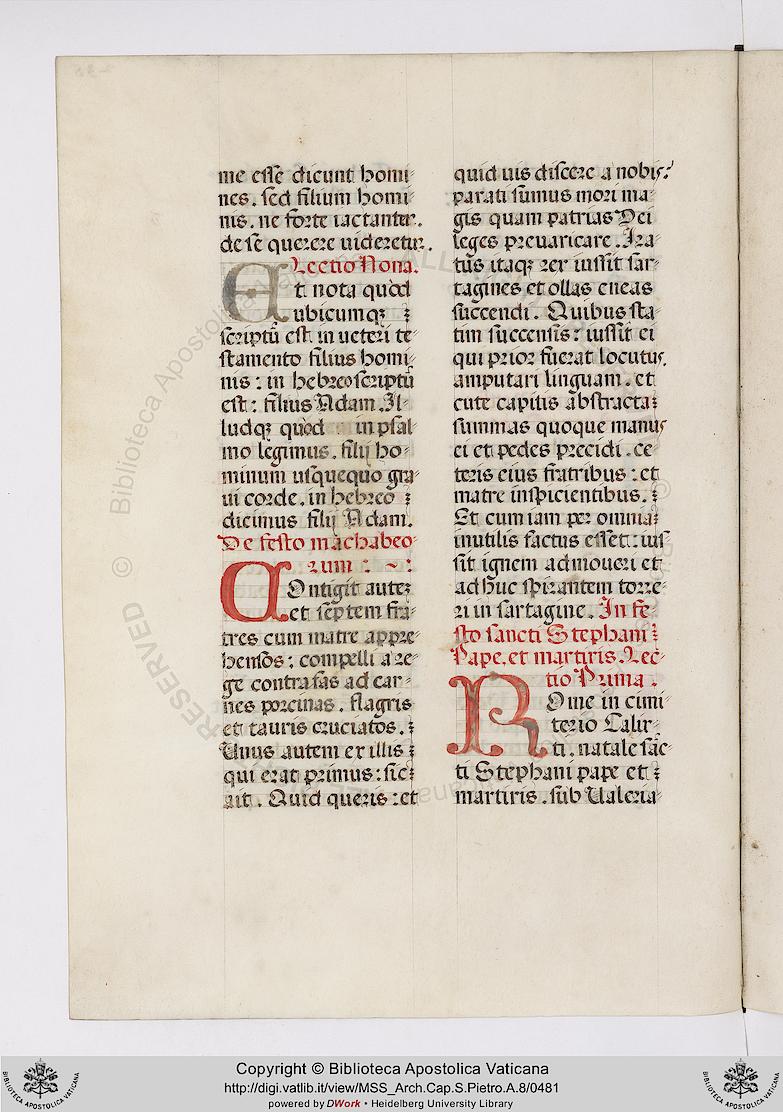 me esse dicunt homi-
nes. sed filium homi-
nis. ne forte iactanter.
de se querere uideretur.
Lectio Nona.
Et nota quod
ubicumqz
scriptū est in ueteri te-
stamento filius homi-
nis: in hebreo scriptū
est: filius Adam. Il-
ludqz quod in psal-
mo legimus. filij ho-
minum usquequo gra-
ui corde. in hebreo
dicimus filij Adam.
De festo machabeo-
rum:
Contigit autez
et septem fra-
tres cum matre appre-
hensos: compelli a re-
ge contra fas ad car-
nes porcinas. flagris
et tauris cruciatos.
Unus autem ex illis
qui erat primus: sic
ait. Quid queris: et
quid uis discere a nobis?
parati sumus mori ma-
gis quam patrias Dei
leges preuaricare. Ira-
tus itaqz rex iussit sar-
tagines et ollas eneas
succendi. Quibus sta-
tim succensis: iussit ei
qui prior fuerat locutus.
amputari linguam. et
cute capitis abstracta:
summas quoque manus
ei et pedes precidi. ce-
teris eius fratribus: et
matre inspicientibus.
Et cum iam per omnia
inutilis factus esset: ius-
sit ignem admoueri et
adhuc spirantem torre-
ri in sartagine. In fe-
sto sancti Stephani
Pape. et martiris. Lec-
tio Prima.
Rome in cimi-
terio Calix-
ti. natale sāc-
ti Stephani pape et
martiris. sub Ualeria-
Copyright © Biblioteca Apostolica Vaticana
http://digi.vatlib.it/view/MSS_Arch.Cap.S.Pietro.A.8/0481
powered by DWork • Heidelberg University Library
BIBLIOTECA APOSTOLICA VATICANA
BIBLIOTECA APOSTOLICA VATICANA